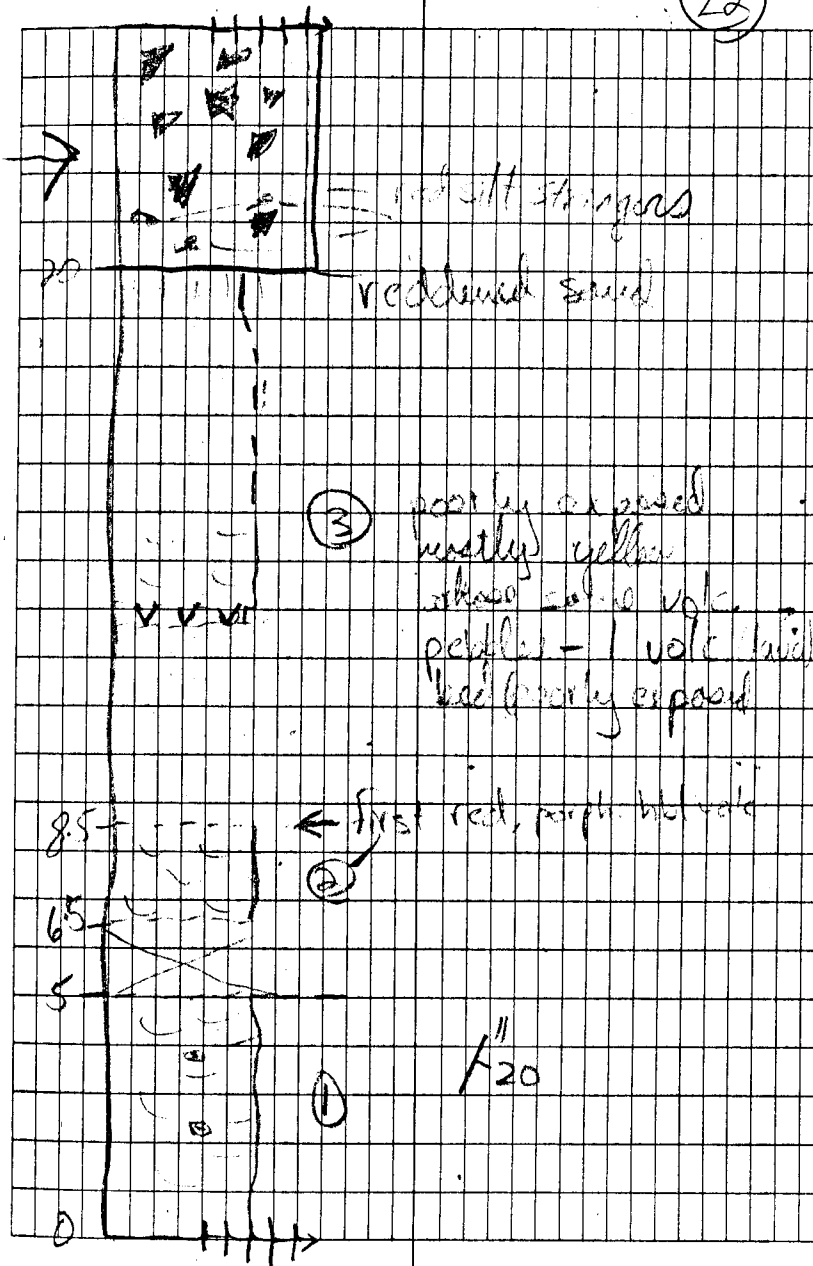 22
red silt stringers
20
reddened sand
3
poorly exposed
mostly yellow
some volc
pebbles - 1 volc
bed (poorly exposed
8.5
← first red, porph. hbl volc
2
6.5
5
20
1
0